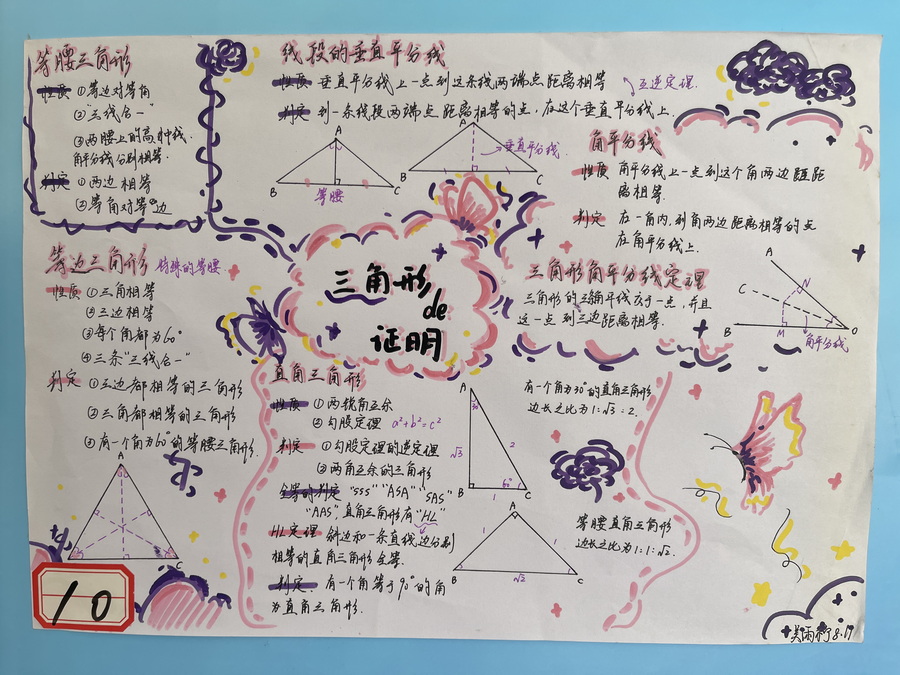 等腰三角形
性质 ①等边对等角
②"三线合一"
③两腰上的高,中线,
角平分线分别相等.
判定 ①两边相等
②等角对等边
线段的垂直平分线
性质 垂直平分线上一点到这条线两端点距离相等
判定 到一条线段两端点距离相等的点,在这个垂直平分线上.
互逆定理.
A
B
C
等腰
A
B
C
垂直平分线
角平分线
性质 角平分线上一点到这个角两边距距
离相等.
判定 在一角内,到角两边距离相等的点
在角平分线上.
三角形
de
证明
等边三角形 特殊的等腰
性质 ①三角相等
②三边相等
③每个角都为60°
④三条"三线合一"
判定 ①三边都相等的三角形
②三角都相等的三角形
③有一个角为60°的等腰三角形.
A
C
三角形角平分线定理
三角形的三角平线交于一点,并且
这一点到三边距离相等.
A
C
N
B
M
O
角平分线
直角三角形
性质 ①两锐角互余
②勾股定理 a²+b²=c²
判定 ①勾股定理的逆定理
②两角互余的三角形
全等的判定 "SSS" "ASA" "SAS"
"AAS" 直角三角形有"HL"
HL定理 斜边和一条直线边分别
相等的直角三角形全等.
判定. 有一个角等于90°的角
为直角三角形.
A
30
√3
2
60°
B
1
C
有一个角为30°的直角三角形
边长之比为1:√3:2.
A
1
1
B
√2
C
等腰直角三角形
边长之比为1:1:√2.
10
8.19